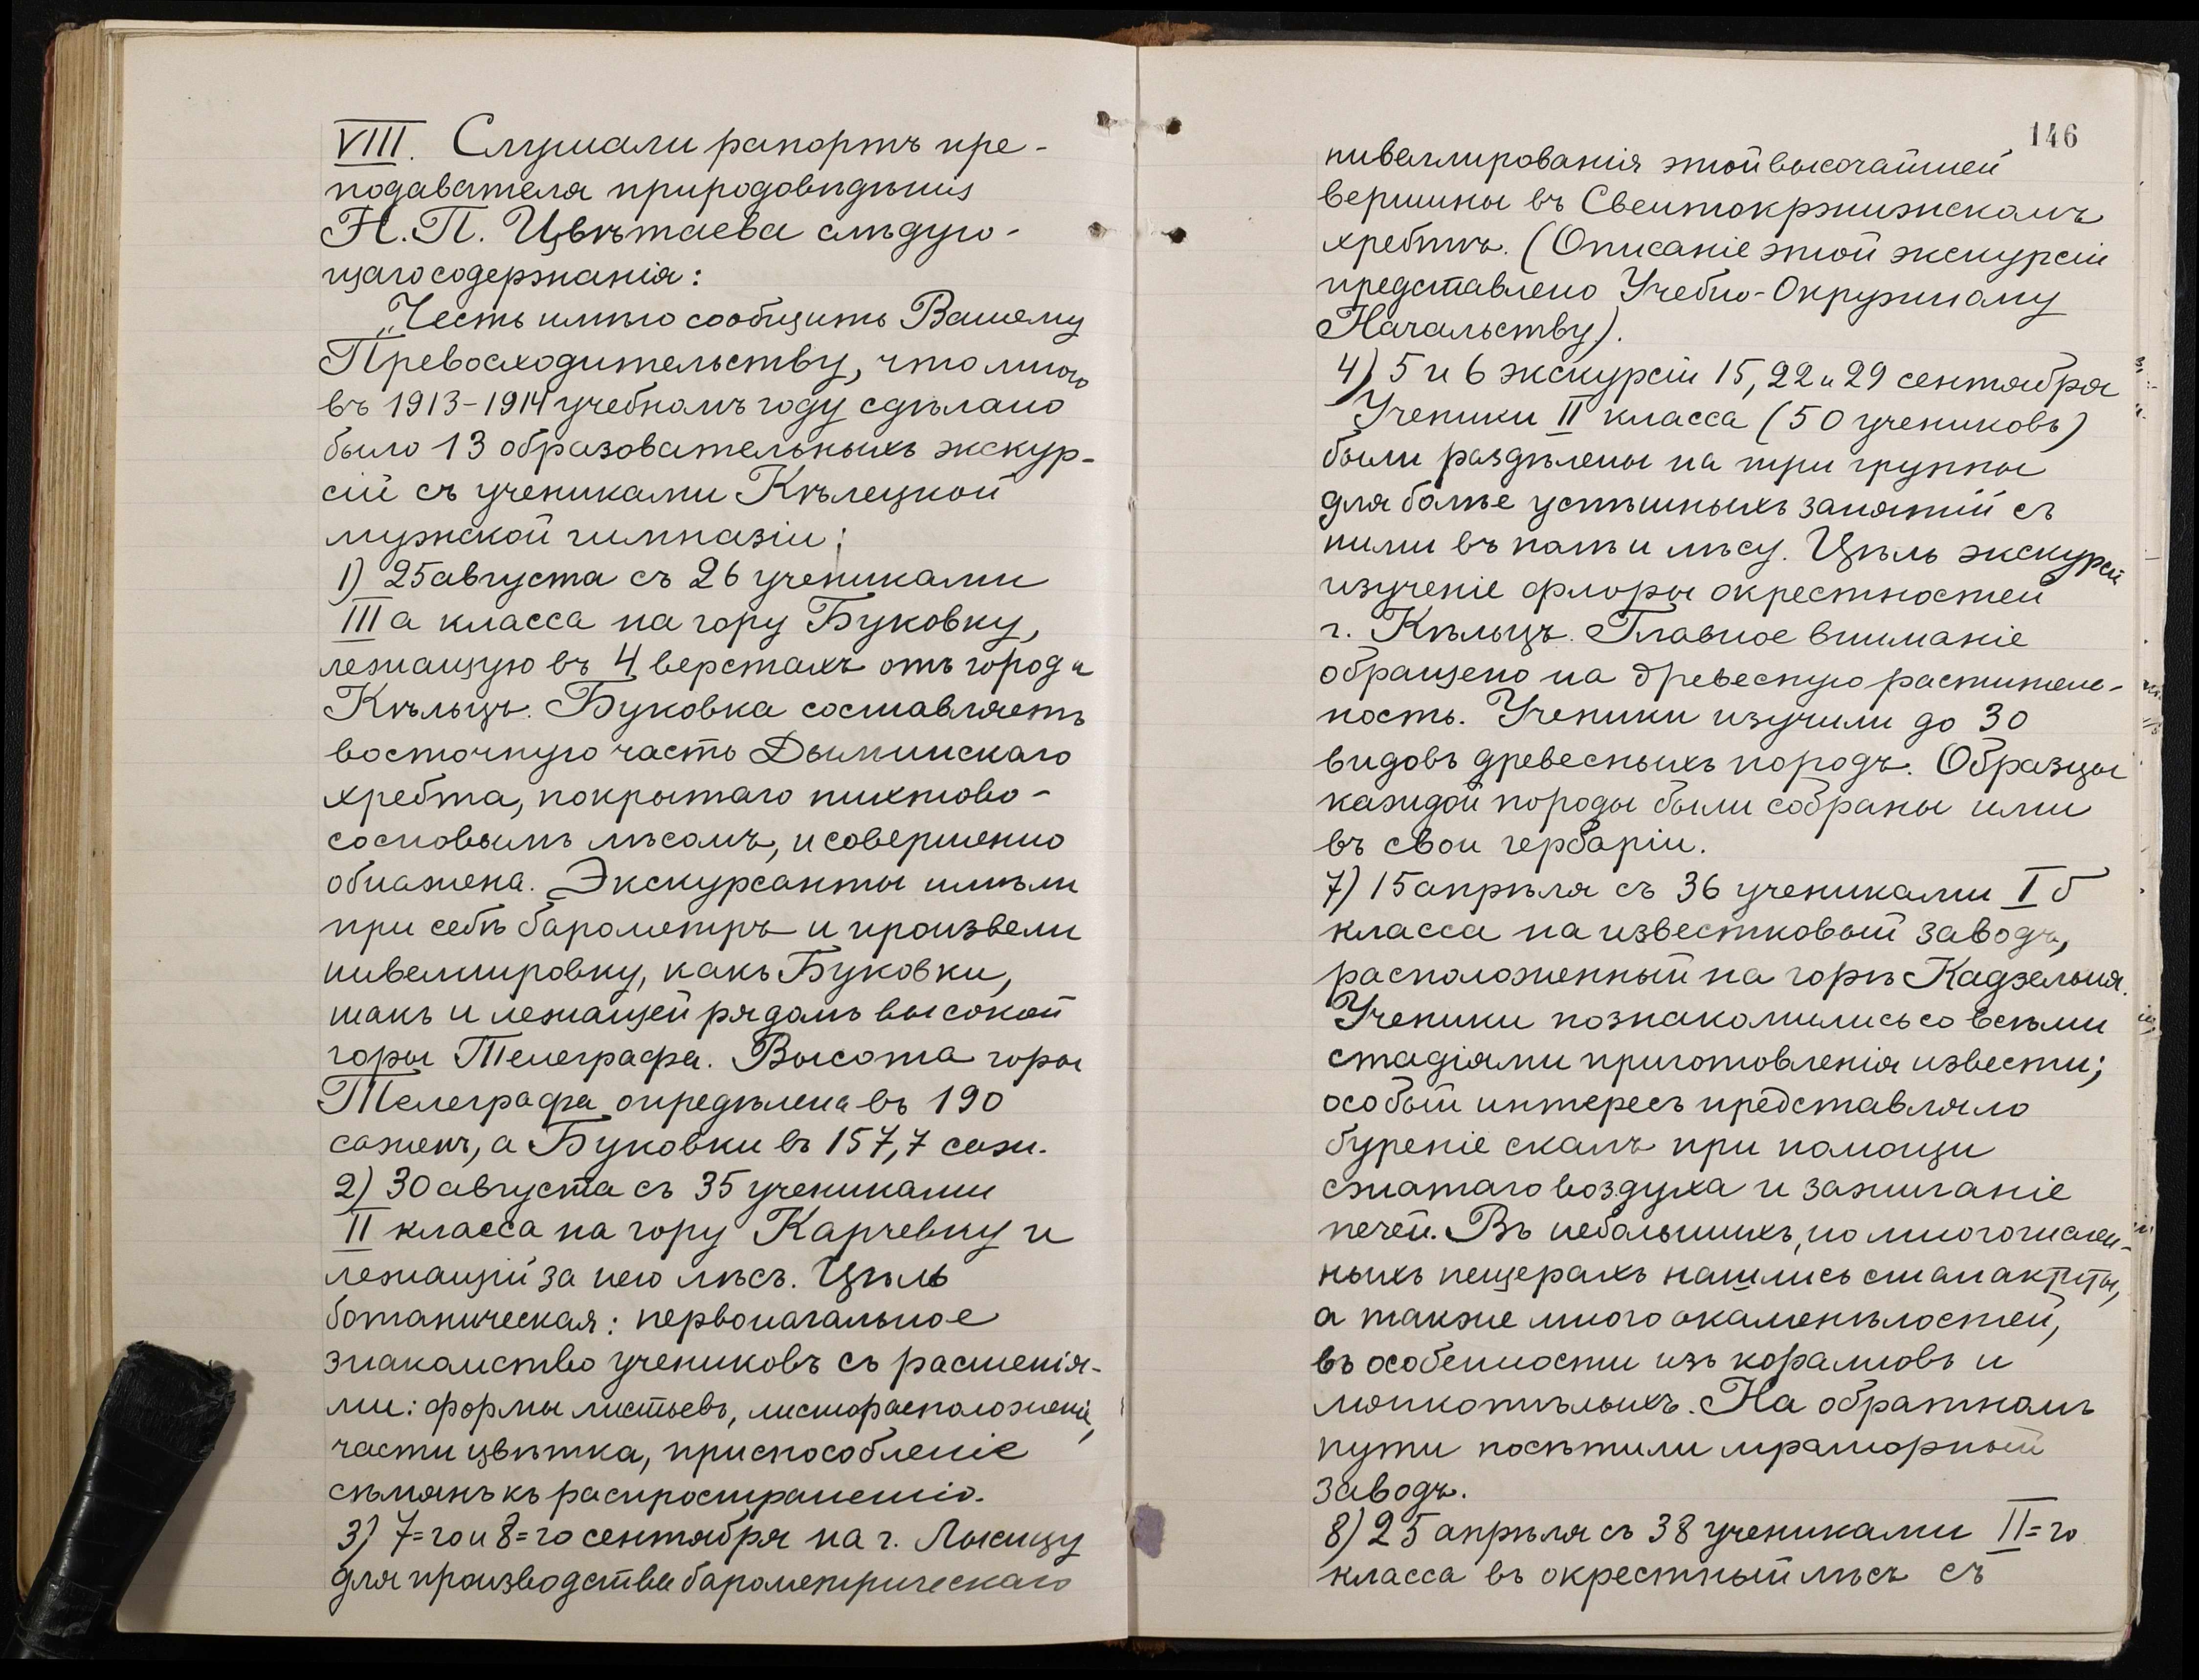 VIII. Слушали рапортъ пре-
подавателя природовѣдѣнія
Н. П. Цвѣтаева слѣдую-
щаго содержанія:
„Честь имѣю сообщить Вашему
Превосходительству, что мною
въ 1913-1914 учебномъ году сдѣлано
было 13 образовательныхъ экскур-
сій съ учениками Кѣлецкой
мужской гимназіи:
1) 25 августа съ 26 учениками
III а класса на гору Буковку,
лежащую въ 4 верстахъ отъ города
Кѣльцъ. Буковка составляетъ
восточную часть Дыминскаго
хребта, покрытаго пихтово-
сосновымъ лѣсомъ, и совершенно
обнажена. Экскурсанты имѣли
при себѣ барометръ и произвели
нивеллировку, какъ Буковки,
такъ и лежащей рядомъ высокой
горы Телеграфа. Высота горы
Телеграфа опредѣлена въ 190
сажен, а Буковки въ 157,7 саж.
2) 30 августа съ 35 учениками
II класса на гору Карчевку и
лежащій за нею лѣсъ. Цѣль
ботаническая: первоначальное
знакомство учениковъ съ растенія-
ми: формы листьевъ, листорасположеніе,
части цвѣтка, приспособленіе
сѣмянъ къ распространенію.
3) 7=го и 8=го сентября на г. Лысицу
для производства барометрическаго
146
нивеллированія этой высочайшей
вершины въ Свентокржижскомъ
хребтѣ. (Описаніе этой экскурсіи
представлено Учебно-Окружному
Начальству).
4) 5 и 6 экскурсіи 15, 22 и 29 сентября
Ученики II класса (50 учениковъ)
были раздѣлены на три группы
для болѣе успѣшныхъ занятій съ
ними въ полѣ и лѣсу. Цѣль экскурсій
изученіе флоры окрестностей
г. Кѣльцъ. Главное вниманіе
обращено на древесную раститель-
ность. Ученики изучили до 30
видовъ древесныхъ породъ. Образцы
каждой породы были собраны ими
въ свои гербаріи.
7) 15 апрѣля съ 36 учениками I б
класса на известковый заводъ,
расположенный на горѣ Кадзельня.
Ученики познакомились со всѣми
стадіями приготовленія извести;
особый интересъ представляло
буреніе скалъ при помощи
сжатаго воздуха и зажиганіе
печей. Въ небольшихъ, но многочислен-
ныхъ пещерахъ нашлись сталактиты,
а также много окаменѣлостей,
въ особенности изъ коралловъ и
мягкотѣлыхъ. На обратномъ
пути посѣтили мраморный
заводъ.
8) 25 апрѣля съ 38 учениками II=го
класса въ окрестный лѣсъ съ